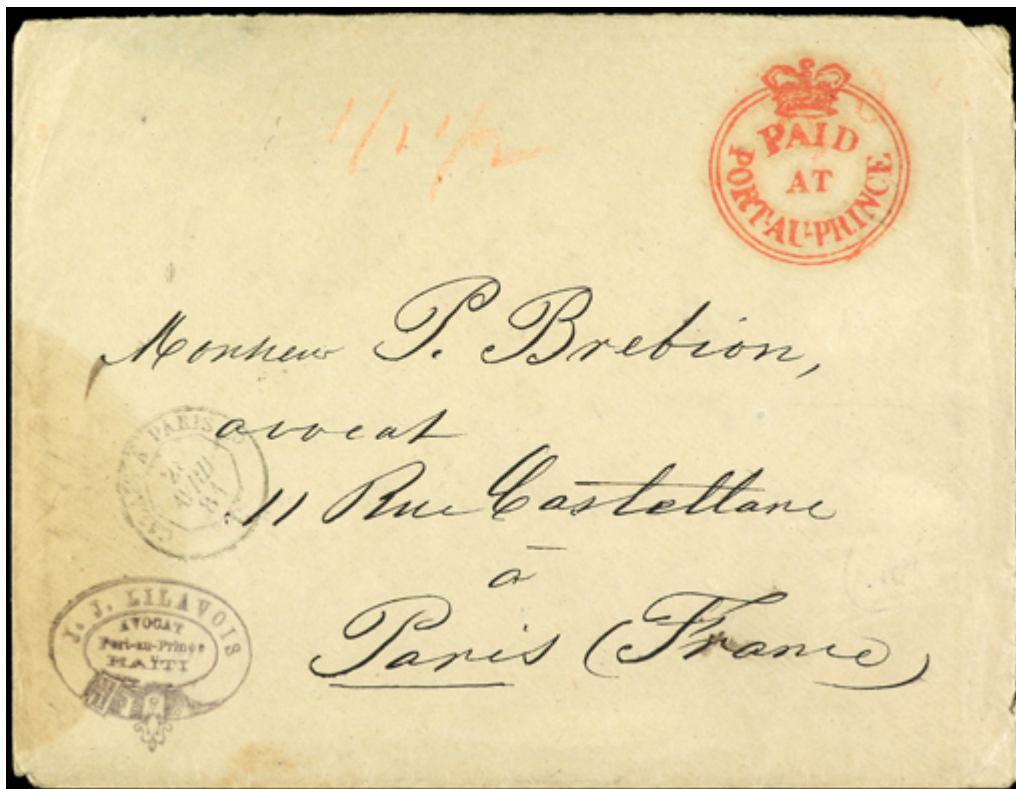 1/1 1/2
PAID
AT
PORT-AU-PRINCE
Monsieur P. Brebion,
avocat
11 Rue Castellane
à
Paris (France)
CALAIS A PARIS
AVRIL
81
J. J. LILAVOIS
AVOCAT
Port-au-Prince
HAITI